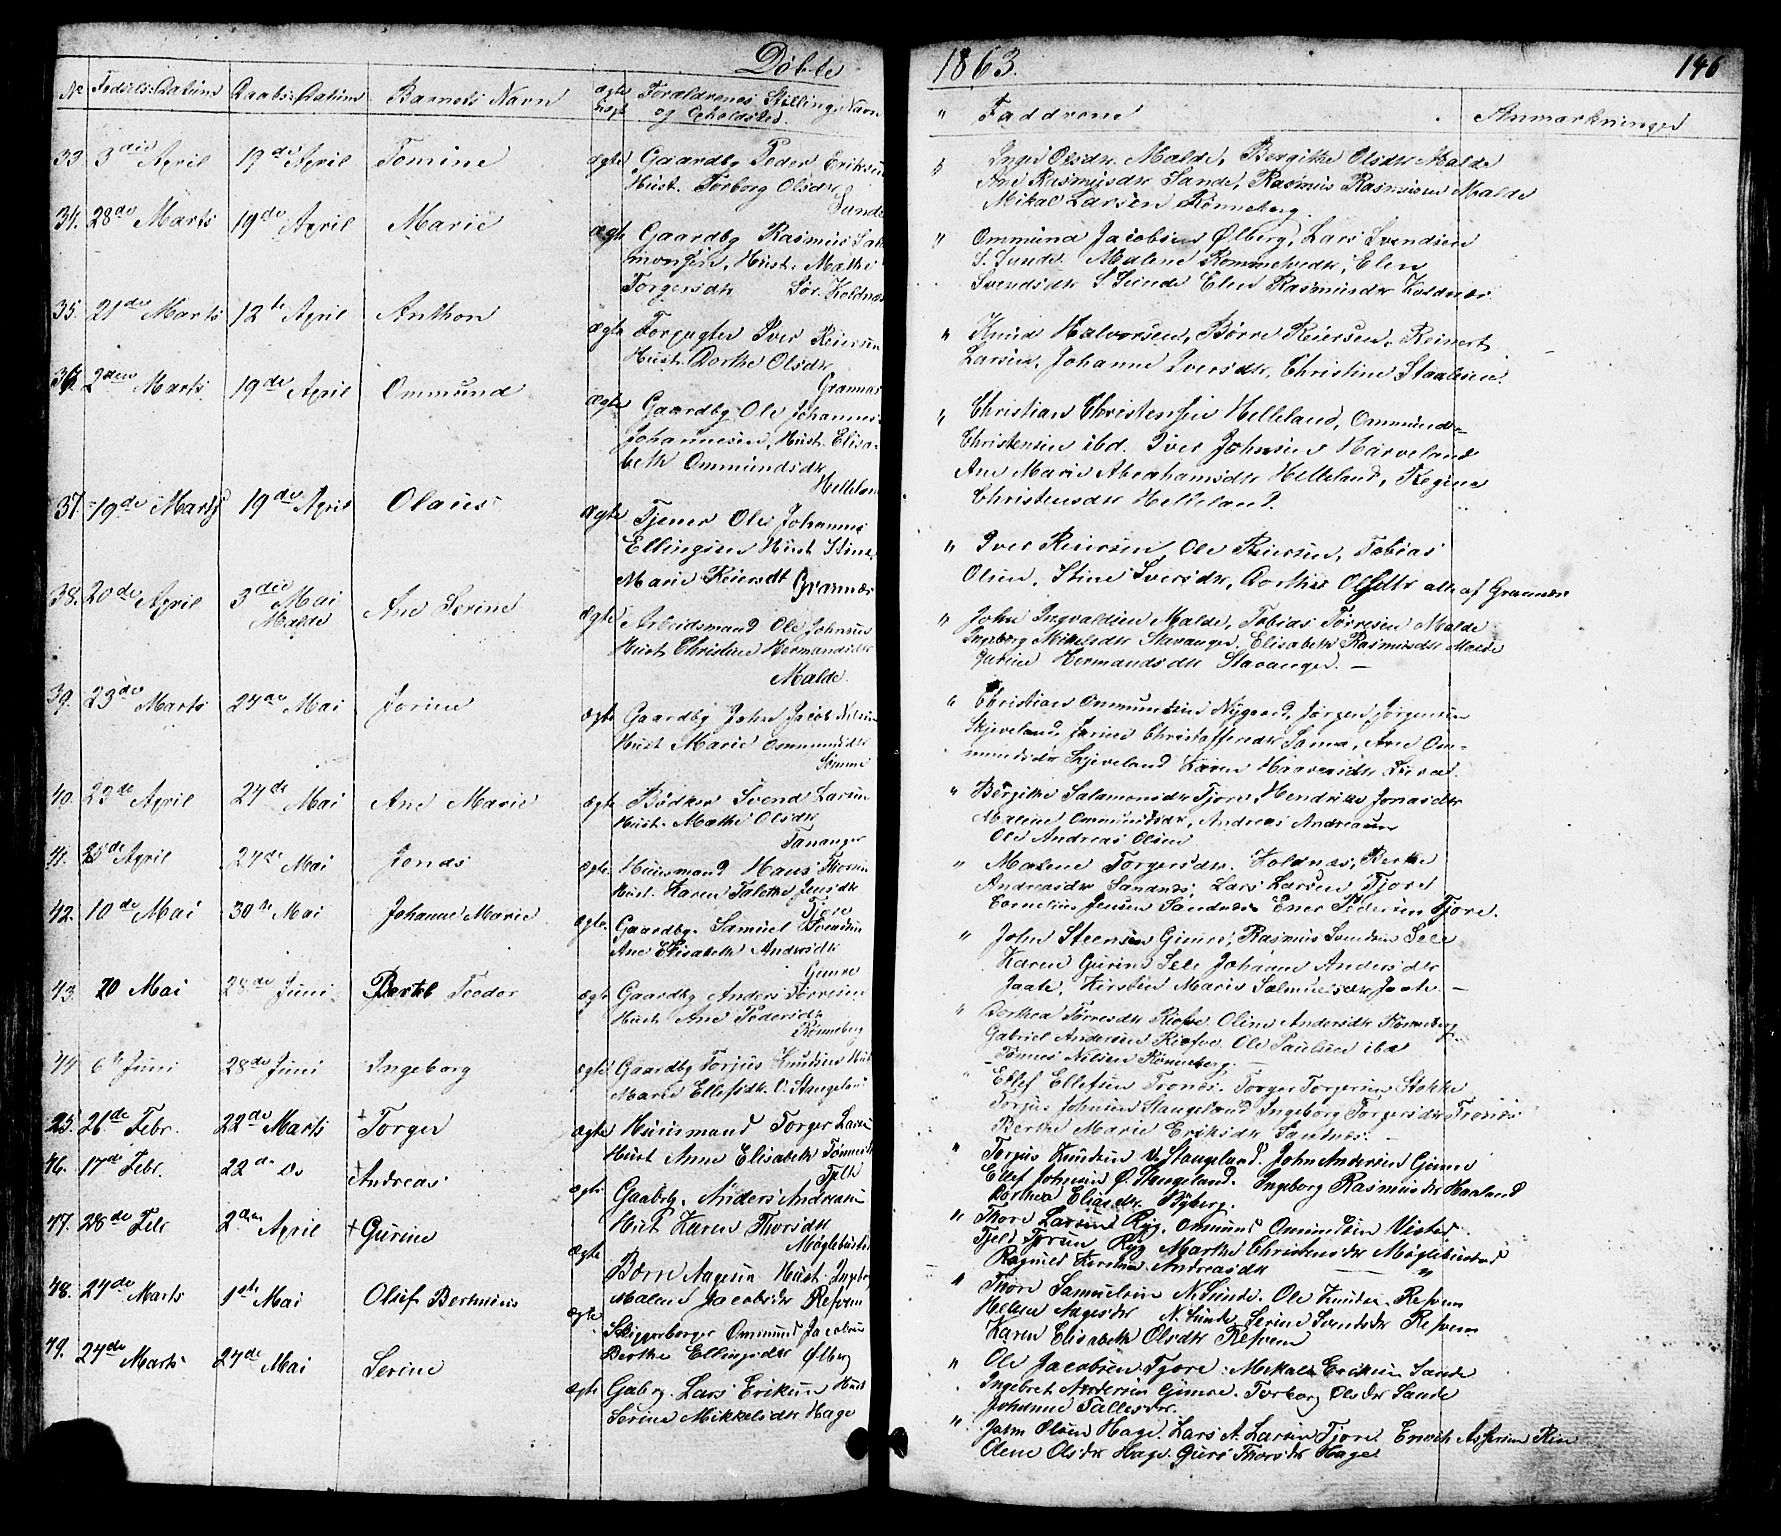 Döbte 1863. 146
No Fødsels-Datum Daabs-Datum Barnets Navn ægte uægt Forældrenes Stilling Navn
og Opholdsted.
" Faddrene Anmærkninger
33. 3die April 19de April Tomine ægte Gaardbg Peder Eriksen
Hust. Torborg Olsdtr
Sande
" Inger Olsdtr. Malde, Bergithe Olsdtr Malde
Ane Rasmusdtr Sande, Rasmus Rasmusen Malde
Mikal Larsen Rönneberg.
34. 28de Marts 19de April Marie ægte Gaardbg Rasmus Salo
monsen, Hust. Mathe
Torgersdtr Sör. Kolnæs
" Ommund Jacobsen Ølberg, Lars Svendsen
S. Sunde. Malene Rommetvedt, Elen
Svendsdtr S Sunde Elen Rasmusdtr Kolnæs.
35. 21de Marts 12te April Anthon ægte Forpagter Iver Reiersen
Hust. Dorthe Olsdtr
Grannæs
" Knud Halvorsen, Börre Reiersen, Reinert
Larsen, Johanne Iversdtr, Christine Staalesen.
36. 2den Marts 19de April Ommund ægte Gaardbg Ole Johannes
Johannesen, Hust. Elisa-
beth Ommundsdtr
Helleland
" Christian Christensen Helleland, Ommund
Christensen ibd. Iver Johnsen Harveland
Ane Marie Abrahamsdtr Helleland, Regine
Christensdtr Helleland.
37. 19de Marts 19de April Olaus ægte Tjener Ole Johannes
Ellingsen Hust Stine
Marie Reiersdt Grannæs
" Iver Reiersen, Ole Reiersen, Tobias
Olsen, Stine Iversdtr, Dorthe Olsdtr alle af Grannæs
38. 20de April 3die Mai
Malde Ane Serine ægte Arbeidsmand Ole Johnsen
Hust Christine Hermandsdtr
Malde.
" John Ingvaldsen Malde, Tobias Törresen Malde
Ingeborg Mikelsdtr Stavanger, Elisabeth Rasmusdtr Malde
Gurine Hermandsdtr Stavanger. —
39. 23de Marts 24de Mai Jorine ægte Gaardbg John Jacob Nilsen
Hust Marie Ommundsdtr
Sömme
" Christian Ommundsen Nygaard, Jörgen Jörgensen
Skjeveland, Jorine Christoffersdtr Soma, Ane Om-
mundsdtr Skjeveland Karen
40. 23de April 24de Mai Ane Marie ægte Bödker Svend Larsen
Hust. Mathe Olsdtr
Tananger
" Bergithe Salamonsdtr Tjore, Hendrikke Jonasdtr
Malene Ommundsdtr, Andreas Andreasen
Ole Andreas Olsen
41. 25de April 24de Mai Jonas ægte. Huusmand Hans Thorsen
Hust. Karen Talethe Jensdtr
Tjore
" Malene Torgersdtr. Koldnæs, Berthe
Andreasdtr Sandnes, Lars Larsen Tjore
Cornelius Jensen Sandnæs Ener Pedersen Tjore.
42. 10de Mai 30te Mai Johanne Marie ægte. Gaardbg. Samuel Svendsen
Ane Elisabeth Andersdtr
Gimre
" John Steensen Gimre, Rasmus Svendsen Sele
Karen Gurine Sele Johanne Andersdtr
Jaate, Kirsten Marie Salmuelsdtr Jaate —
43. 20 Mai 28de Juni Bertel Teodor ægte Gaardbg Anders Törresen
Hust Ane Pedersdtr
Rönneberg
" Dorthea Törresdtr Risfoe Oline Andersdtr Rönneberg
Gabriel Andersen Risfoe. Ole Paulsen ibd
Tömes Nilsen Rönneberg.
44 6te Juni 28de Juni Ingeborg ægte Gaardbg Torjus Knudsen Hust
Maria Ellefsdtr. V. Stangeland
" Ellef Ellefsen Tronæs. Torger Torgersen Stokke
Torjus Johnsen Stangeland Ingeborg Torgersdtr Tronæs
Berthe Marie Eriksdtr Sandnes. —
25. 26de Febr. 22de Marts + Torger ægte Huusmand Torger Larsen
Hust Anne Elisabeth Tönnesdtr
Tjelte
" Torjus Knudsen V. Stangeland. John Andersen Gimre
Ellef Johnsen Ø. Stangeland. Ingeborg Rasmusdtr Haaland
Dorthea Eliasdtr Myberg.
46. 17de Febr. 22 de Do + Andreas ægte. Gaabrg. Anders Andreasen
Hust Karen Thorsdtr
Möglebustad
" Thore Larsen Ryg. Ommund Ommundsen Visted
Tjeld Tjorsen Ryg Marthe Christensdtr Möglebustad
Ragnild Kirstine Andreasdtr "
47. 28de Febr 2den April + Gurine ægte Börre Aagesen Hust Ingeborg
Malene Jacobsdtr Resven
" Thore Samuelsen N. Sunde. Ole Knudsen Resven
Helene Aagesdtr N. Sunde Serine Svendsdtr Resven
Karen Elisabeth Olsdtr Resven
48. 24de Marts 1ste Mai Oluf Berthinius ægte. Skipperborger Ommund Jacobsen
Berthe Ellingsdtr Ølberg
" Ole Jacobsen Tjore. Mikal Eriksen Sande
Ingebret Andersen Gimre. Torborg Olsdtr Sande
Johanne Tallesdtr.
49. 24de Marts 24de Mai Serine ægte Gabrg. Lars Eriksen Hust
Serine Mikkelsdtr Hage
" John Olsen Hage. Lars A. Larsen Tjore. Enoch
Olene Olsdtr Hage. Guri Thorsdtr Hage.